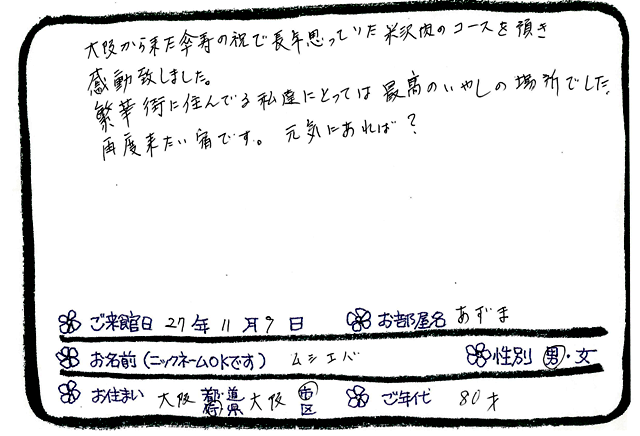 大阪から来た傘寿の祝で長年思っていた米沢肉のコースを頂き
感動致しました。
繁華街に住んでる私達にとっては最高のいやしの場所でした。
再度来たい宿です。元気にあれば？
ご来館日 27年11月9日 お部屋名 あずま
お名前(ニックネームOKです) ムシエバ 性別 男・女
お住まい 大阪 都道府県 大阪 市区 ご年代 80才